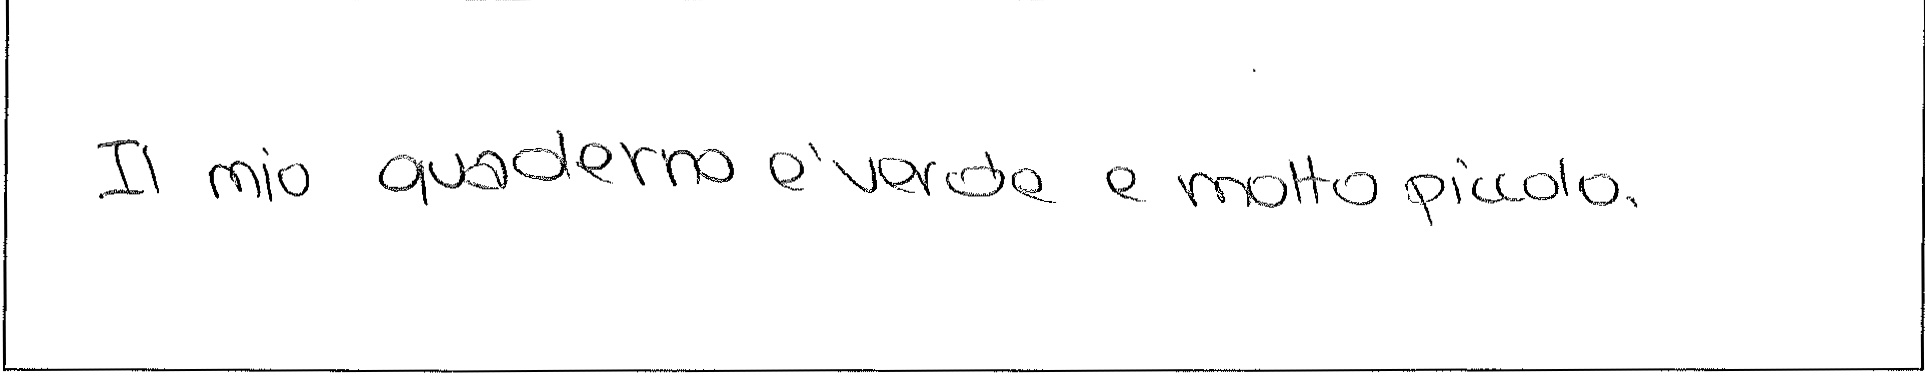 Il mio quaderno e' verde e molto piccolo.